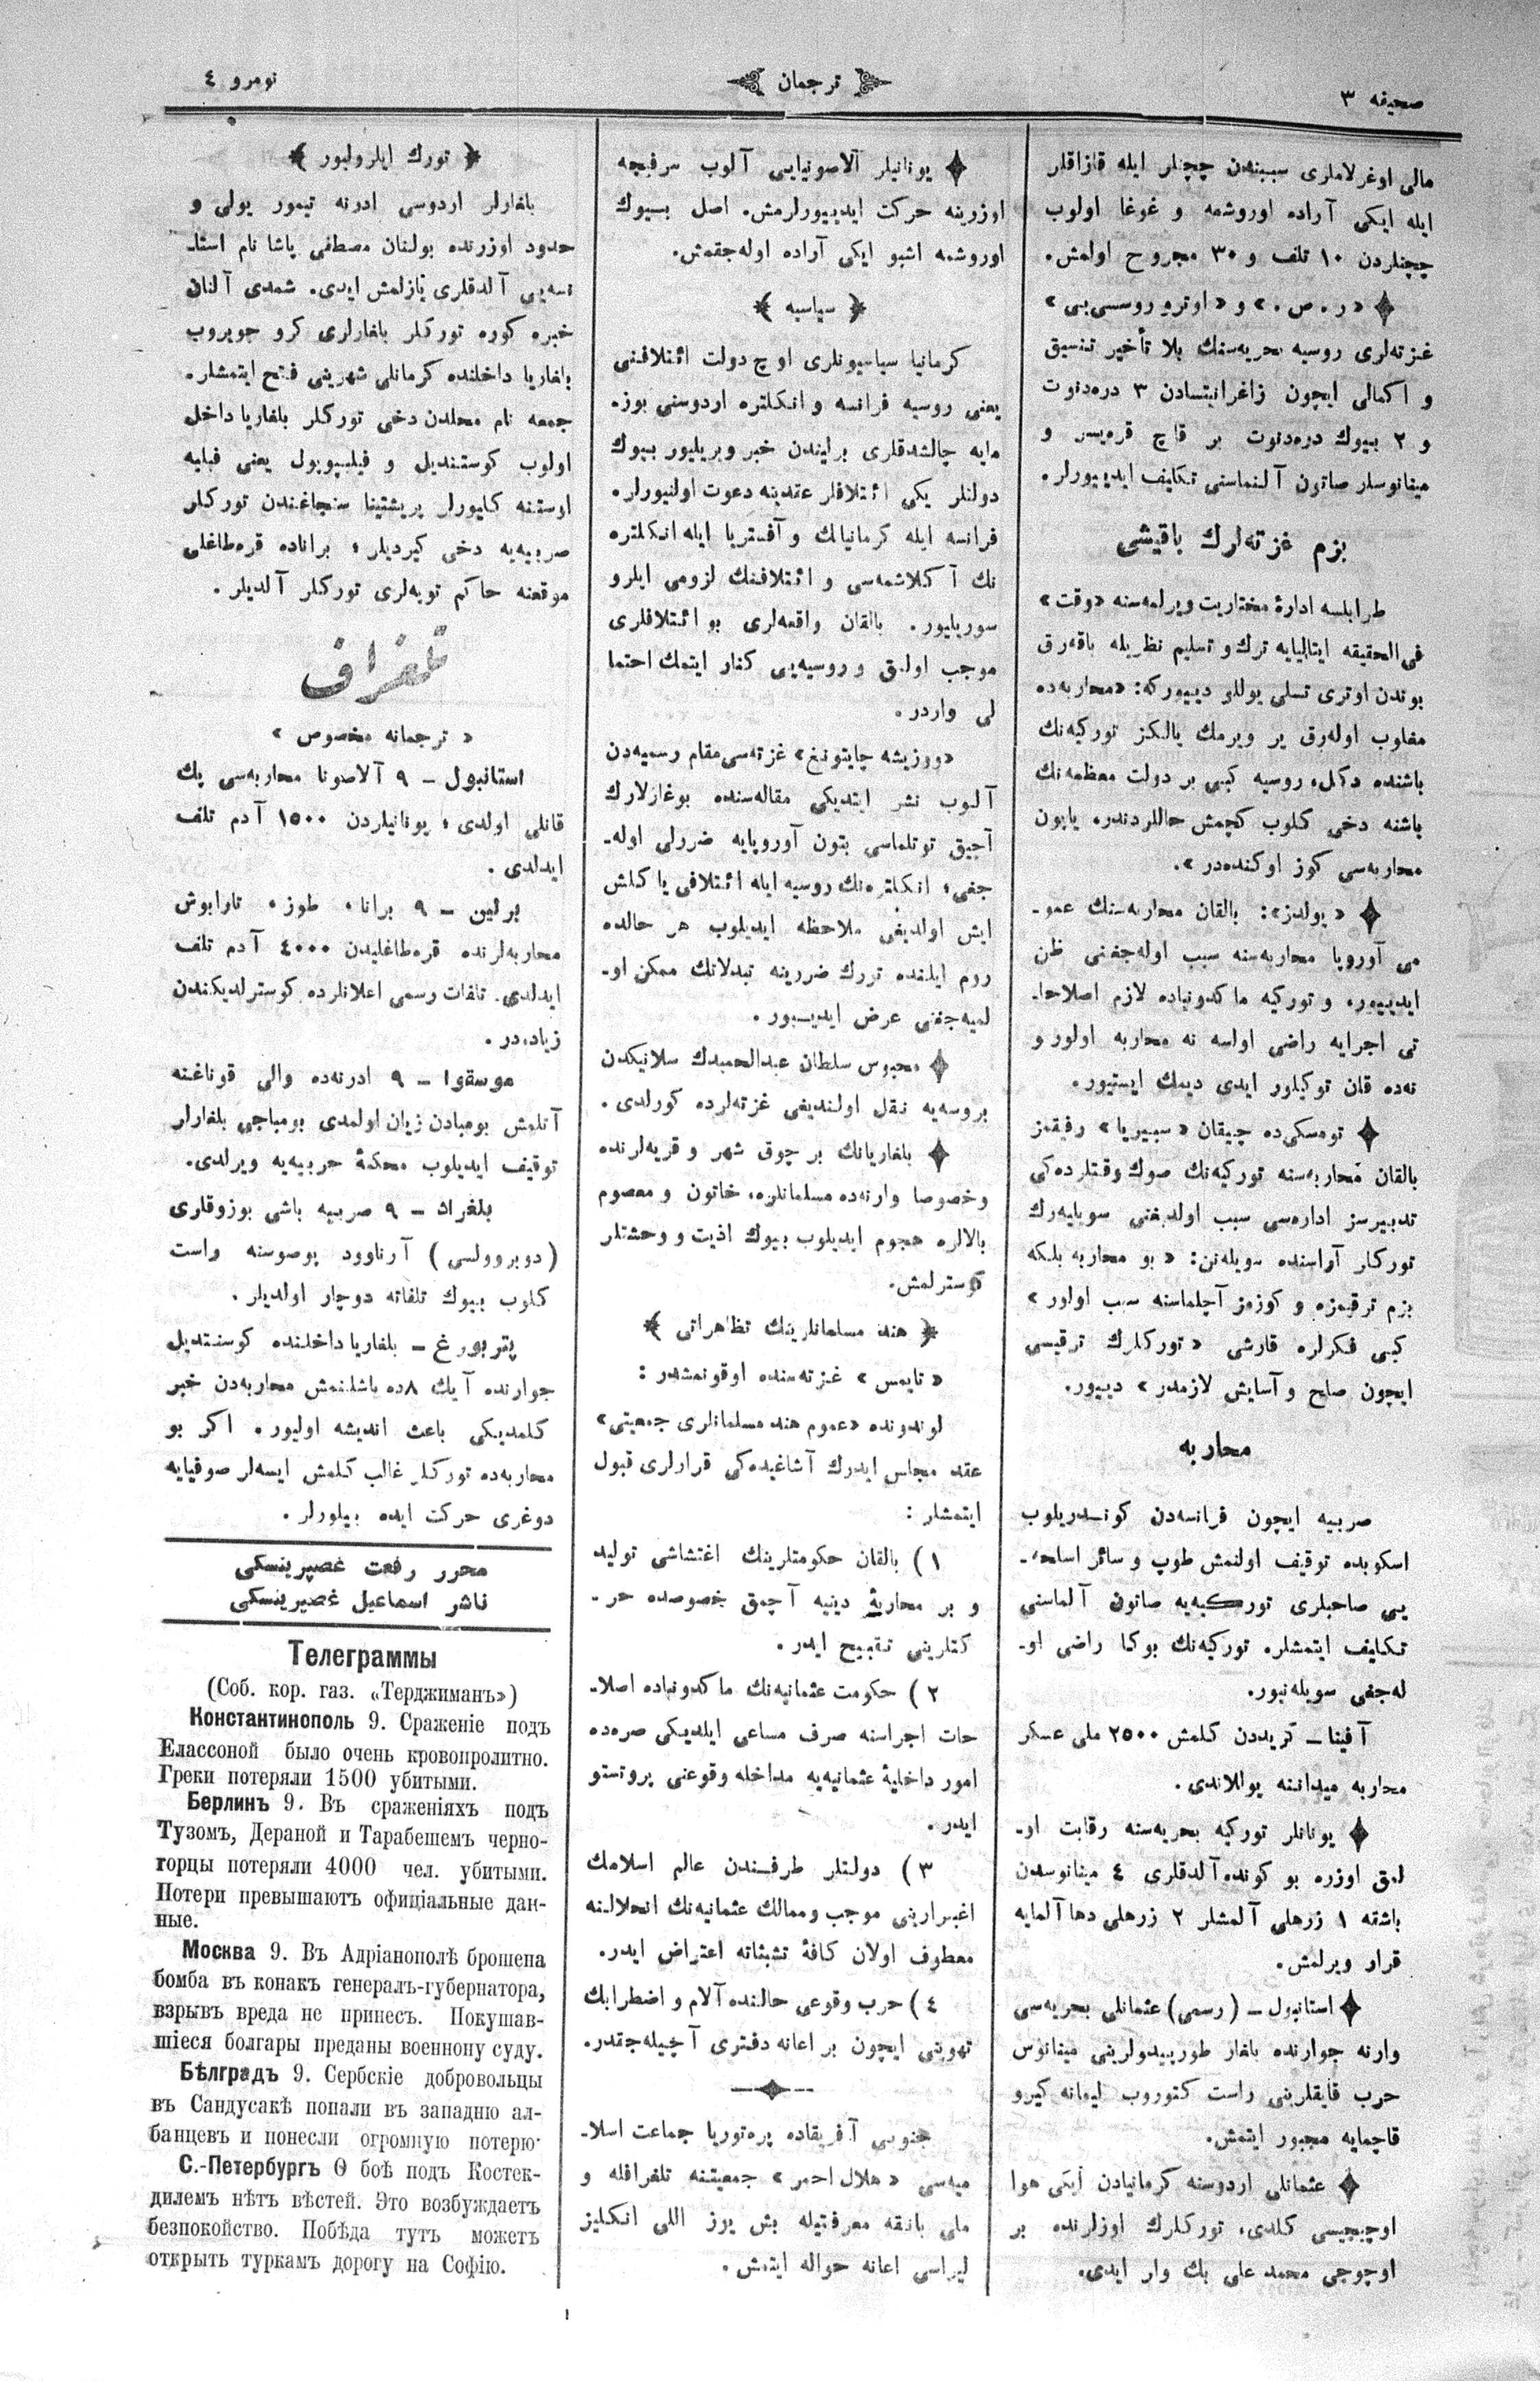 صحیفه ٣
ترجمان
نومرو ٤
مالی اوغرلاملری سببندن چچنلر ایله قازاقلر
ایله ایکی آراده اوروشمه و غوغا اولوب
چچنلردن ١٠ تلف و ٣٠ مجروح اولمش.
«ر. ص.» و «اوترو روسسیی»
غزته‌لری روسیه بحریه‌سنك بلا تأخیر تنسیق
و اکمالی ایچون زاغرانیتسادن ٣ دره‌دنوت
و ٢ بیوك دره‌دنوت بر قاچ قره‌یسر و
مینانوسلر صاتون آلنماسنی تکلیف ایدییورلر.
بزم غزته‌لرك باقیشی
طرابلسه ادارهٔ مختاریت ویرلمه‌سنه «وقت»
فی الحقیقه ایتالیایه ترك و تسلیم نظریله باقه‌رق
بوندن اوتری تسلی یوللو دییورکه: «محاربه‌ده
مغلوب اوله‌رق یر ویرمك یالکز تورکیه‌نك
باشنده دکل، روسیه کبی بر دولت معظمه‌نك
باشنه دخی کلوب کچمش حاللردندر. یاپون
محاربه‌سی کوز اوکنده‌در».
«یولدز»: بالقان محاربه‌سنك عمو-
می آوروپا محاربه‌سنه سبب اوله‌جغنی ظن
ایدییور، و تورکیه ماکدونیاده لازم اصلاحا-
تی اجرایه راضی اولسه نه محاربه اولور و
نه‌ده قان توکیلور ایدی دیمك ایستیور.
تومسکی‌ده چیقان «سیبریا» رفیقمز
بالقان محاربه‌سنه تورکیه‌نك صوك وقتلرده‌کی
تدبیرسز اداره‌سی سبب اولدیغنی سویلیه‌رك
تورکلر آراسنده سویله‌نن: «بو محاربه بلکه
بزم ترقیمزه و کوزمز آچلماسنه سبب اولور»
کبی فکرلره قارشی «تورکلرك ترقیسی
ایچون صلح و آسایش لازمدر» دییور.
محاربه
صربیه ایچون فرانسه‌دن کوندریلوب
اسکوبده توقیف اولنمش طوپ و سائر اسلحه-
یی صاحبلری تورکیه‌یه صاتون آلماسنی
تکلیف ایتمشلر. تورکیه‌نك بوکا راضی او-
له‌جغی سویله‌نیور.
آفینا – کریددن کلمش ٢٥٠٠ ملی عسکر
محاربه میداننه یوللاندی.
یونانلر تورکیه بحریه‌سنه رقابت او-
لمق اوزره بو کونده آلدقلری ٤ مینانوسدن
باشقه ١ زرهلی آلمشلر ٢ زرهلی دها آلمایه
قرار ویرلمش.
استانبول – (رسمی) عثمانلی بحریه‌سی
وارنه جوارنده بلغار طورپیدولرینی مینانوس
حرب قایقلرینی راست کتوروب لیمانه کیرو
قاچمایه مجبور ایتمش.
عثمانلی اردوسنه کرمانیادن ایکی هوا
اوچیجیسی کلدی، تورکلرك اوزلرنده بر
اوچوجی محمد علی بك وار ایدی.
یونانیلر آلاصونیایی آلوب سرفیجه
اوزرینه حرکت ایدییورلرمش. اصل بیوك
اوروشمه اشبو ایکی آراده اوله‌جقمش.
سیاسیه
کرمانیا سیاسیونلری اوچ دولت ائتلافنی
یعنی روسیه فرانسه و انکلتره اردوسنی بوز-
مایه چالشدقلری برلیندن خبر ویریلیور بیوك
دولتلر یکی ائتلافلر عقدینه دعوت اولنیورلر.
فرانسه ایله کرمانیانك و آفستریا ایله انکلتره
نك آکلاشمه‌سی و ائتلافنك لزومی ایلرو
سوریلیور. بالقان واقعه‌لری بو ائتلافلری
موجب اولمق و روسیه‌یی کنار ایتمك احتما
لی واردر.
«ووزیشه چایتونغ» غزته‌سی مقام رسمیه‌دن
آلوب نشر ایتدیکی مقاله‌سنده بوغازلارك
آجیق توتلماسی بتون آوروپایه ضررلی اوله-
جغی، انکلتره‌نك روسیه ایله ائتلافی یاکلش
ایش اولدیغی ملاحظه ایدیلوب هر حالده
روم ایلنده تورك ضررینه تبدلاتك ممکن او-
لمیه‌جغنی عرض ایدییور.
محبوس سلطان عبدالحمیدك سلانیکدن
بروسه‌یه نقل اولندیغی غزته‌لرده کورلدی.
بلغاریانك بر چوق شهر و قریه‌لرنده
وخصوصا وارنه‌ده مسلمانلره، خاتون و معصوم
بالالره هجوم ایدیلوب بیوك اذیت و وحشتلر
کوسترلمش.
هند مسلمانلرینك تظاهراتی
«تایمس» غزته‌سنده اوقونمشدر:
لوندونده «عموم هند مسلمانلری جمعیتی»
عقد مجلس ایدرك آشاغیده‌کی قرارلری قبول
ایتمشلر:
١) بالقان حکومتلرینك اغتشاشی تولید
و بر محاربهٔ دینیه آچمق خصوصده حر-
کتلرینی تقبیح ایدر.
٢) حکومت عثمانیه‌نك ماکدونیاده اصلا-
حات اجراسنه صرف مساعی ایلدیکی صره‌ده
امور داخلیهٔ عثمانیه‌یه مداخله وقوعنی پروتستو
ایدر.
٣) دولتلر طرفندن عالم اسلامك
اغبرارینی موجب وممالك عثمانیه‌نك انحلالنه
معطوف اولان کافهٔ تشبثاته اعتراض ایدر.
٤) حرب وقوعی حالنده آلام و اضطرابك
تهوینی ایچون بر اعانه دفتری آچیله‌جقدر.
جنوبی آفریقاده پره‌توریا جماعت اسلا-
میه‌سی «هلال احمر» جمعیتنه تلغرافله و
ملی بانقه معرفتیله بش یوز اللی انکلیز
لیراسی اعانه حواله ایتمش.
تورك ایلرولیور
بلغارلر اردوسی ادرنه تیمور یولی و
حدود اوزرنده بولنان مصطفی پاشا نام استا-
نسه‌یی آلدقلری یازلمش ایدی. شمدی آلنان
خبره کوره تورکلر بلغارلری کرو چویروب
بلغاریا داخلنده کرمانلی شهرینی فتح ایتمشلر.
جمعه نام محلدن دخی تورکلر بلغاریا داخل
اولوب کوستندیل و فیلیپوپول یعنی فیلبه
اوستنه کلیورلر پریشتینا سنجاغندن تورکلر
صربیه‌یه دخی کیردیلر، براناده قره‌طاغلی
موقعنه حاکم توپه‌لری تورکلر آلدیلر.
تلغراف
«ترجمانه مخصوص»
استانبول – ٩ آلاصونا محاربه‌سی پك
قانلی اولدی، یونانیلردن ١٥٠٠ آدم تلف
ایدلدی.
برلین – ٩ برانا، طوز، تارابوش
محاربه‌لرنده قره‌طاغلیدن ٤٠٠٠ آدم تلف
ایدلدی. تلفات رسمی اعلانلرده کوسترلدیکندن
زیاده‌در.
موسقوا – ٩ ادرنه‌ده والی قوناغنه
آتلمش بومبادن زیان اولمدی بومباجی بلغارلر
توقیف ایدیلوب محکمهٔ حربیه‌یه ویرلدی.
بلغراد – ٩ صربیه باشی بوزوقلری
(دوبروولسی) آرناوود پوصوسنه راست
کلوب بیوك تلفاته دوچار اولدیلر.
پتربورغ – بلغاریا داخلنده کوستندیل
جوارنده آیك ٨ده باشلنمش محاربه‌دن خبر
کلمدیکی باعث اندیشه اولیور. اکر بو
محاربه‌ده تورکلر غالب کلمش ایسه‌لر صوفیایه
دوغری حرکت ایده بیلورلر.
محرر رفعت غصپرینسکی
ناشر اسماعیل غصپرینسکی
Телеграммы
(Соб. кор. газ. «Терджиманъ»)
Константинополь 9. Сраженіе подъ
Елассоной было очень кровопролитно.
Греки потеряли 1500 убитыми.
Берлинъ 9. Въ сраженіяхъ подъ
Тузомъ, Дераной и Тарабешемъ черно-
горцы потеряли 4000 чел. убитыми.
Потери превышаютъ офиціальные дан-
ные.
Москва 9. Въ Адріанополѣ брошена
бомба въ конакъ генералъ-губернатора,
взрывъ вреда не принесъ. Покушав-
шіеся болгары преданы военному суду.
Бѣлградъ 9. Сербскіе добровольцы
въ Сандусакѣ попали въ западню ал-
банцевъ и понесли огромную потерю
С.-Петербургъ О боѣ подъ Костек-
дилемъ нѣтъ вѣстей. Это возбуждаетъ
безпокойство. Побѣда тутъ можетъ
открыть туркамъ дорогу на Софію.